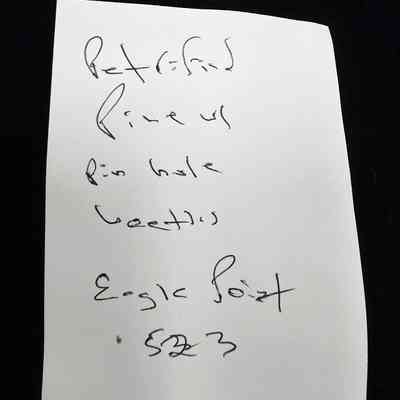 Petrifind
Pine w/
Pin hole
beetles
Eagle Point